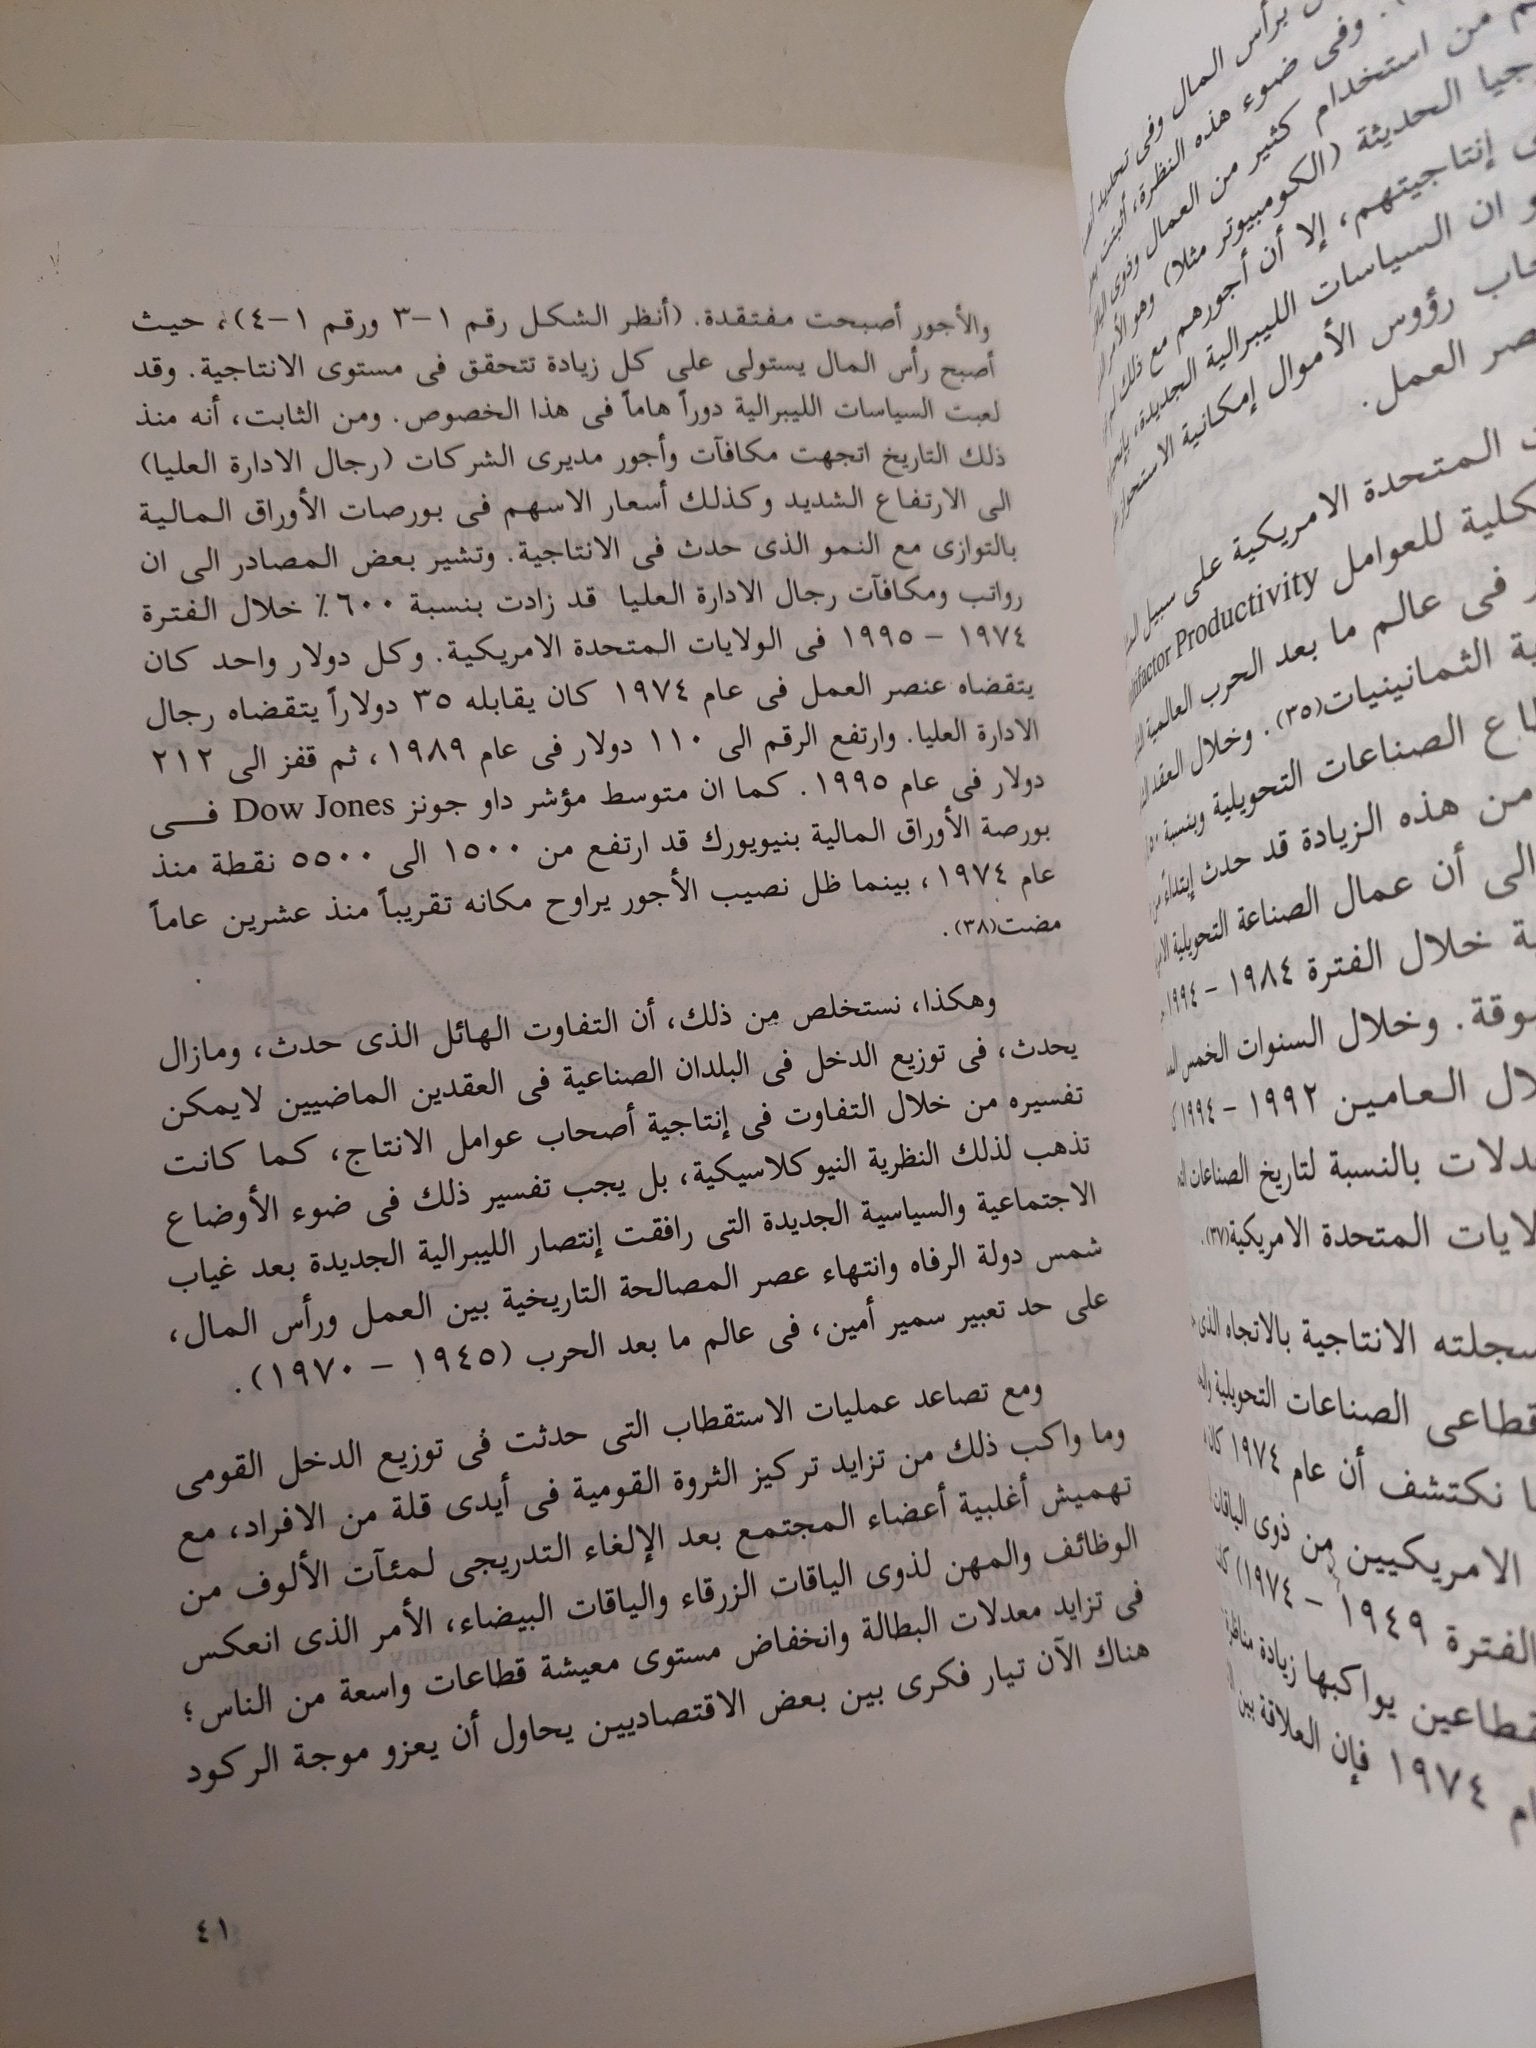 برأس المال وفى تحديد
وفى ضوء هذه النظرة، أثبتت
من استخدام كثير من العمال وذوى
الحديثة (الكومبيوتر مثلا) وهو الأمر
إنتاجيتهم، إلا أن أجورهم مع ذلك لم
ان السياسات الليبرالية الجديدة،
رؤوس الأموال إمكانية
العمل.
المتحدة الامريكية على سبيل
للعوامل Productivity
فى عالم ما بعد الحرب العالمية
الثمانينيات(٣٥). وخلال العقد
الصناعات التحويلية وبنسبة
من هذه الزيادة قد حدث إبتداءً من
الى أن عمال الصناعة التحويلية
خلال الفترة ١٩٨٤ – ١٩٩٤
وخلال السنوات الخمس
العامين ١٩٩٢ – ١٩٩٤
بالنسبة لتاريخ الصناعات
المتحدة الامريكية(٣٧).
الانتاجية بالاتجاه الذى
الصناعات التحويلية
نكتشف أن عام ١٩٧٤
الامريكيين من ذوى الياقات
الفترة ١٩٤٩ – ١٩٧٤)
يواكبها زيادة
١٩٧٤ فإن العلاقة بين
والأجور أصبحت مفتقدة. (أنظر الشكل رقم ١–٣ ورقم ١–٤)، حيث
أصبح رأس المال يستولى على كل زيادة تتحقق فى مستوى الانتاجية. وقد
لعبت السياسات الليبرالية دوراً هاماً فى هذا الخصوص. ومن الثابت، أنه منذ
ذلك التاريخ اتجهت مكافآت وأجور مديرى الشركات (رجال الادارة العليا)
الى الارتفاع الشديد وكذلك أسعار الاسهم فى بورصات الأوراق المالية
بالتوازى مع النمو الذى حدث فى الانتاجية. وتشير بعض المصادر الى ان
رواتب ومكافآت رجال الادارة العليا قد زادت بنسبة ٦٠٠٪ خلال الفترة
١٩٧٤ – ١٩٩٥ فى الولايات المتحدة الامريكية. وكل دولار واحد كان
يتقضاه عنصر العمل فى عام ١٩٧٤ كان يقابله ٣٥ دولاراً يتقضاه رجال
الادارة العليا. وارتفع الرقم الى ١١٠ دولار فى عام ١٩٨٩، ثم قفز الى ٢١٢
دولار فى عام ١٩٩٥. كما ان متوسط مؤشر داو جونز Dow Jones فى
بورصة الأوراق المالية بنيويورك قد ارتفع من ١٥٠٠ الى ٥٥٠٠ نقطة منذ
عام ١٩٧٤، بينما ظل نصيب الأجور يراوح مكانه تقريباً منذ عشرين عاماً
مضت(٣٨).
وهكذا، نستخلص من ذلك، أن التفاوت الهائل الذى حدث، ومازال
يحدث، فى توزيع الدخل فى البلدان الصناعية فى العقدين الماضيين لايمكن
تفسيره من خلال التفاوت فى إنتاجية أصحاب عوامل الانتاج، كما كانت
تذهب لذلك النظرية النيوكلاسيكية، بل يجب تفسير ذلك فى ضوء الأوضاع
الاجتماعية والسياسية الجديدة التى رافقت إنتصار الليبرالية الجديدة بعد غياب
شمس دولة الرفاه وانتهاء عصر المصالحة التاريخية بين العمل ورأس المال،
على حد تعبير سمير أمين، فى عالم ما بعد الحرب (١٩٤٥ – ١٩٧٠).
ومع تصاعد عمليات الاستقطاب التى حدثت فى توزيع الدخل القومى
وما واكب ذلك من تزايد تركيز الثروة القومية فى أيدى قلة من الافراد، مع
تهميش أغلبية أعضاء المجتمع بعد الإلغاء التدريجى لمئآت الألوف من
الوظائف والمهن لذوى الياقات الزرقاء والياقات البيضاء، الأمر الذى انعكس
فى تزايد معدلات البطالة وانخفاض مستوى معيشة قطاعات واسعة من الناس؛
هناك الآن تيار فكرى بين بعض الاقتصاديين يحاول أن يعزو موجة الركود
٤١